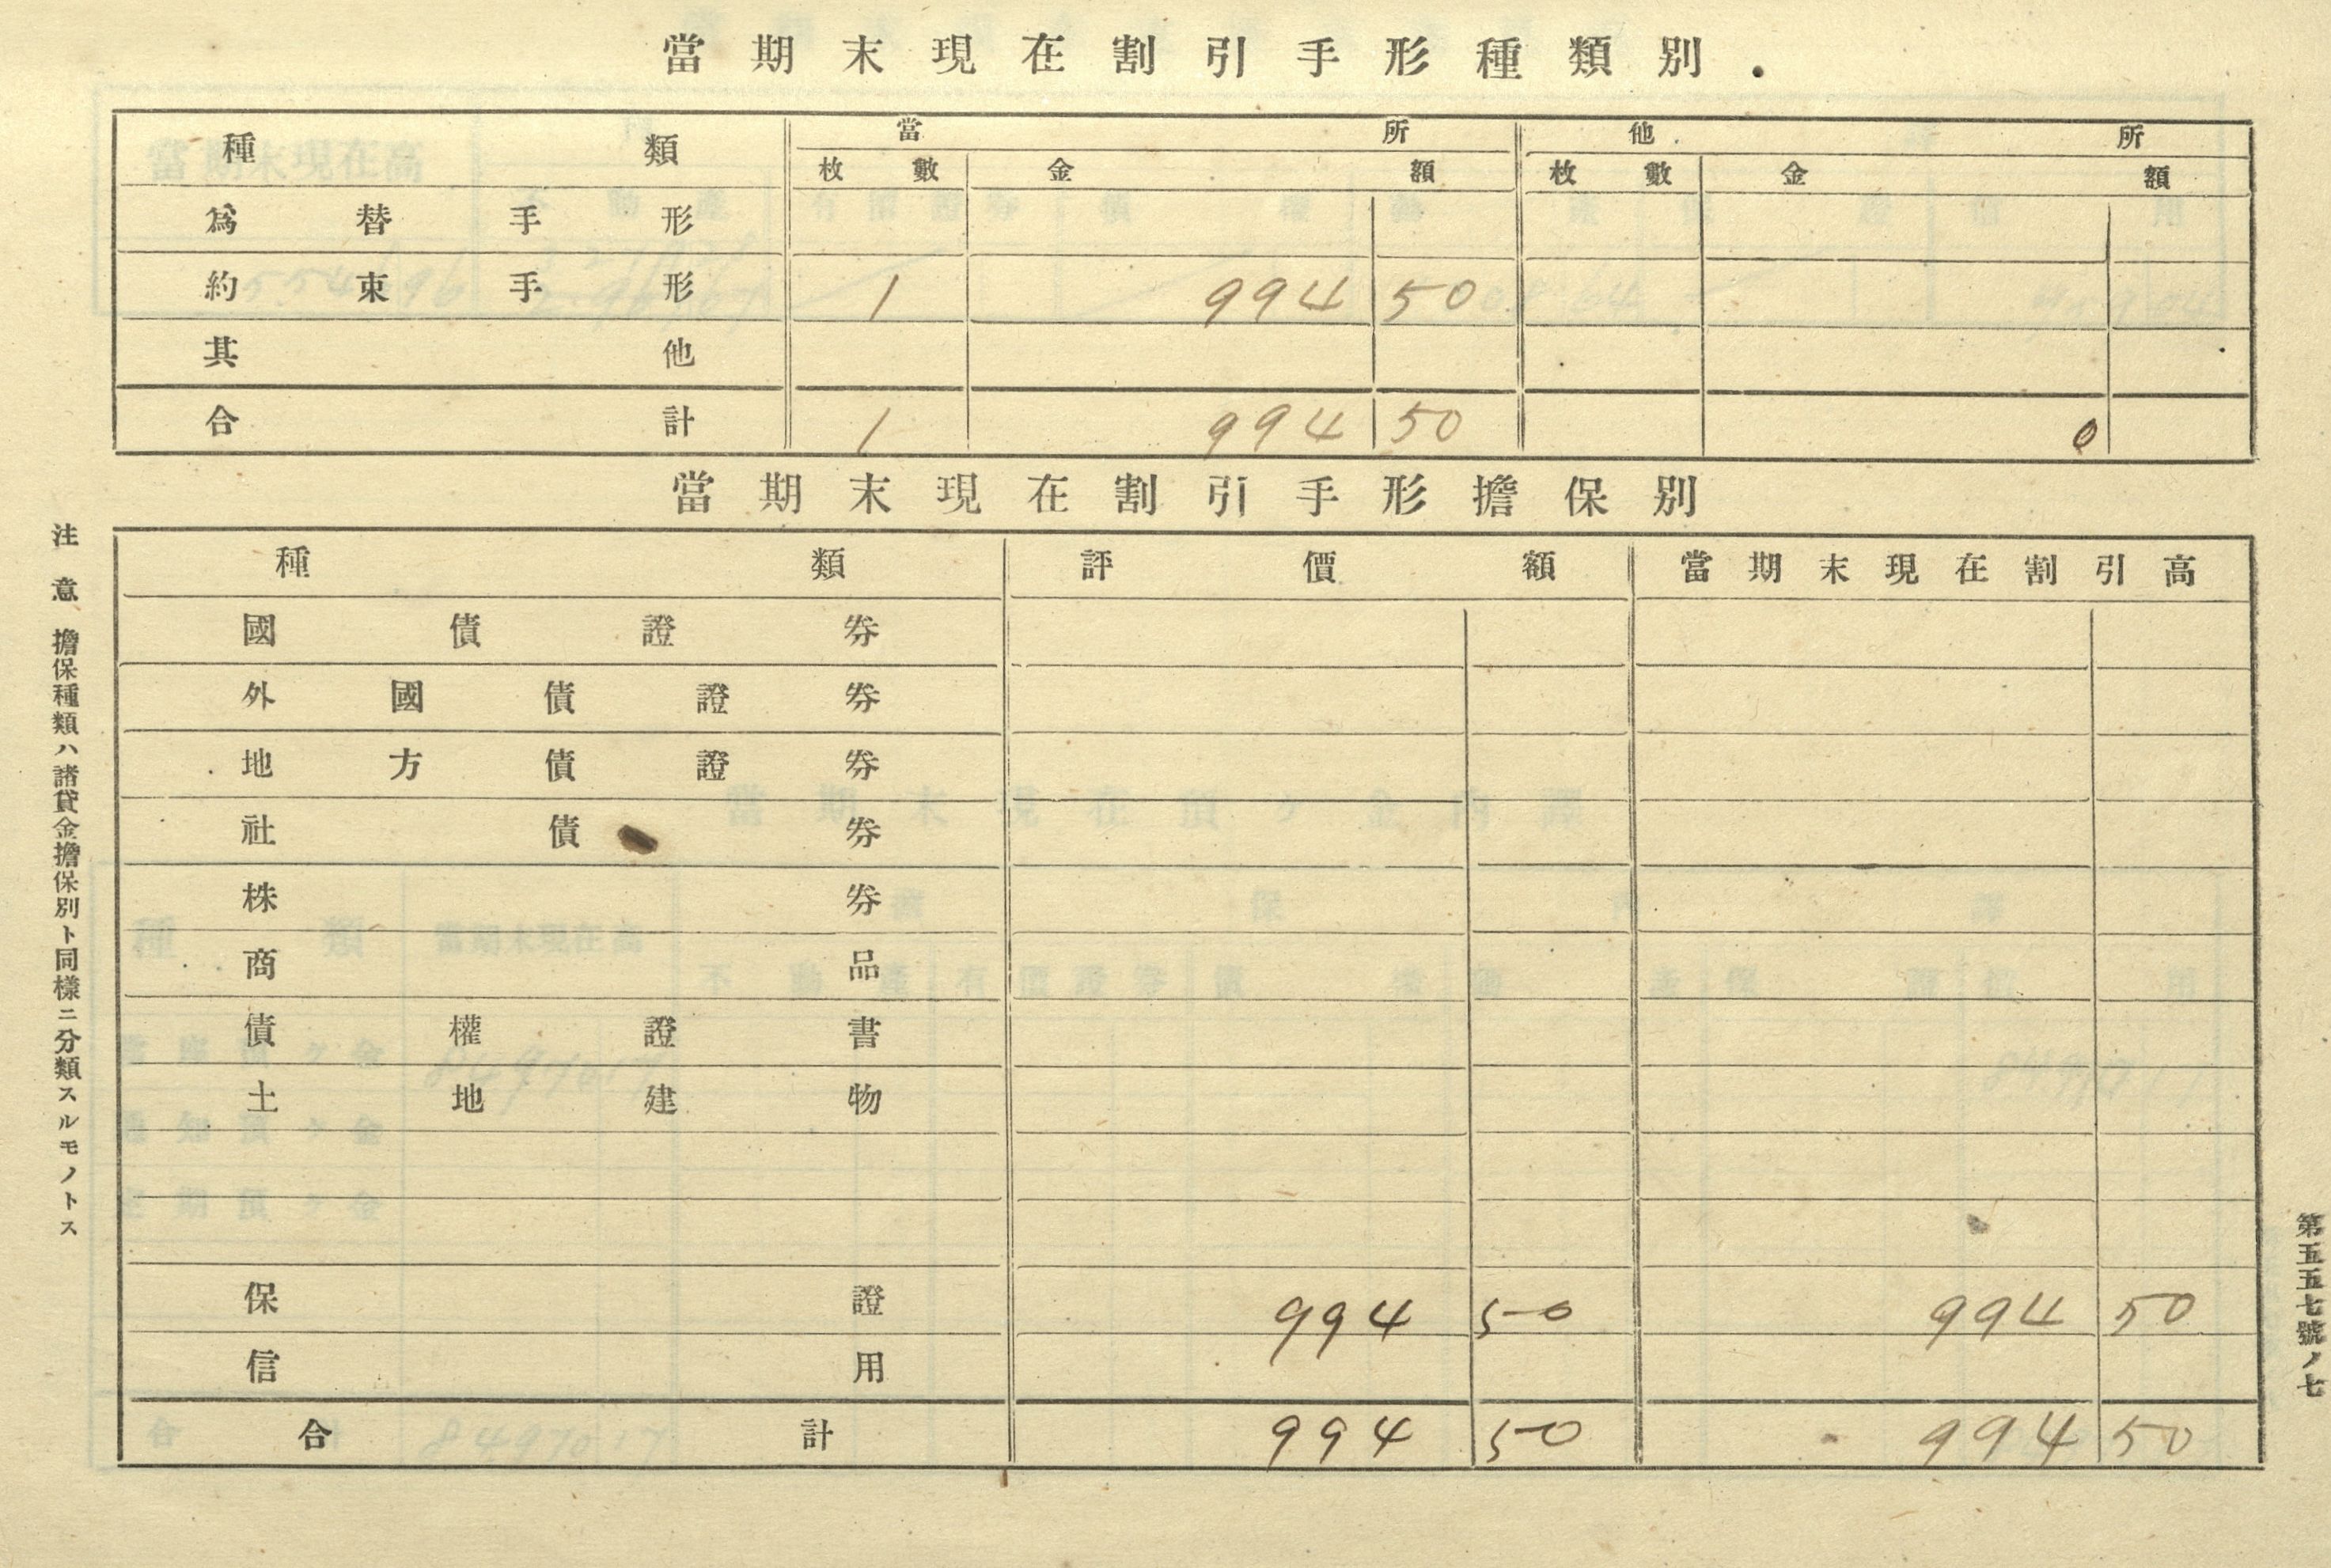 當期末現在割引手形種類別
種類 當所 他所
枚數 金額 枚數 金額
爲替手形
約束手形 1 994 50
其他
合計 1 994 50 0
當期末現在割引手形擔保別
種類 評價額 當期末現在割引高
國債證券
外國債證券
地方債證券
社債券
株券
商品
債權證書
土地建物
保證 994 50 994 50
信用
合計 994 50 994 50
注意 擔保種類ハ諸貸金擔保別ト同樣ニ分類スルモノトス
第五五七號ノ七